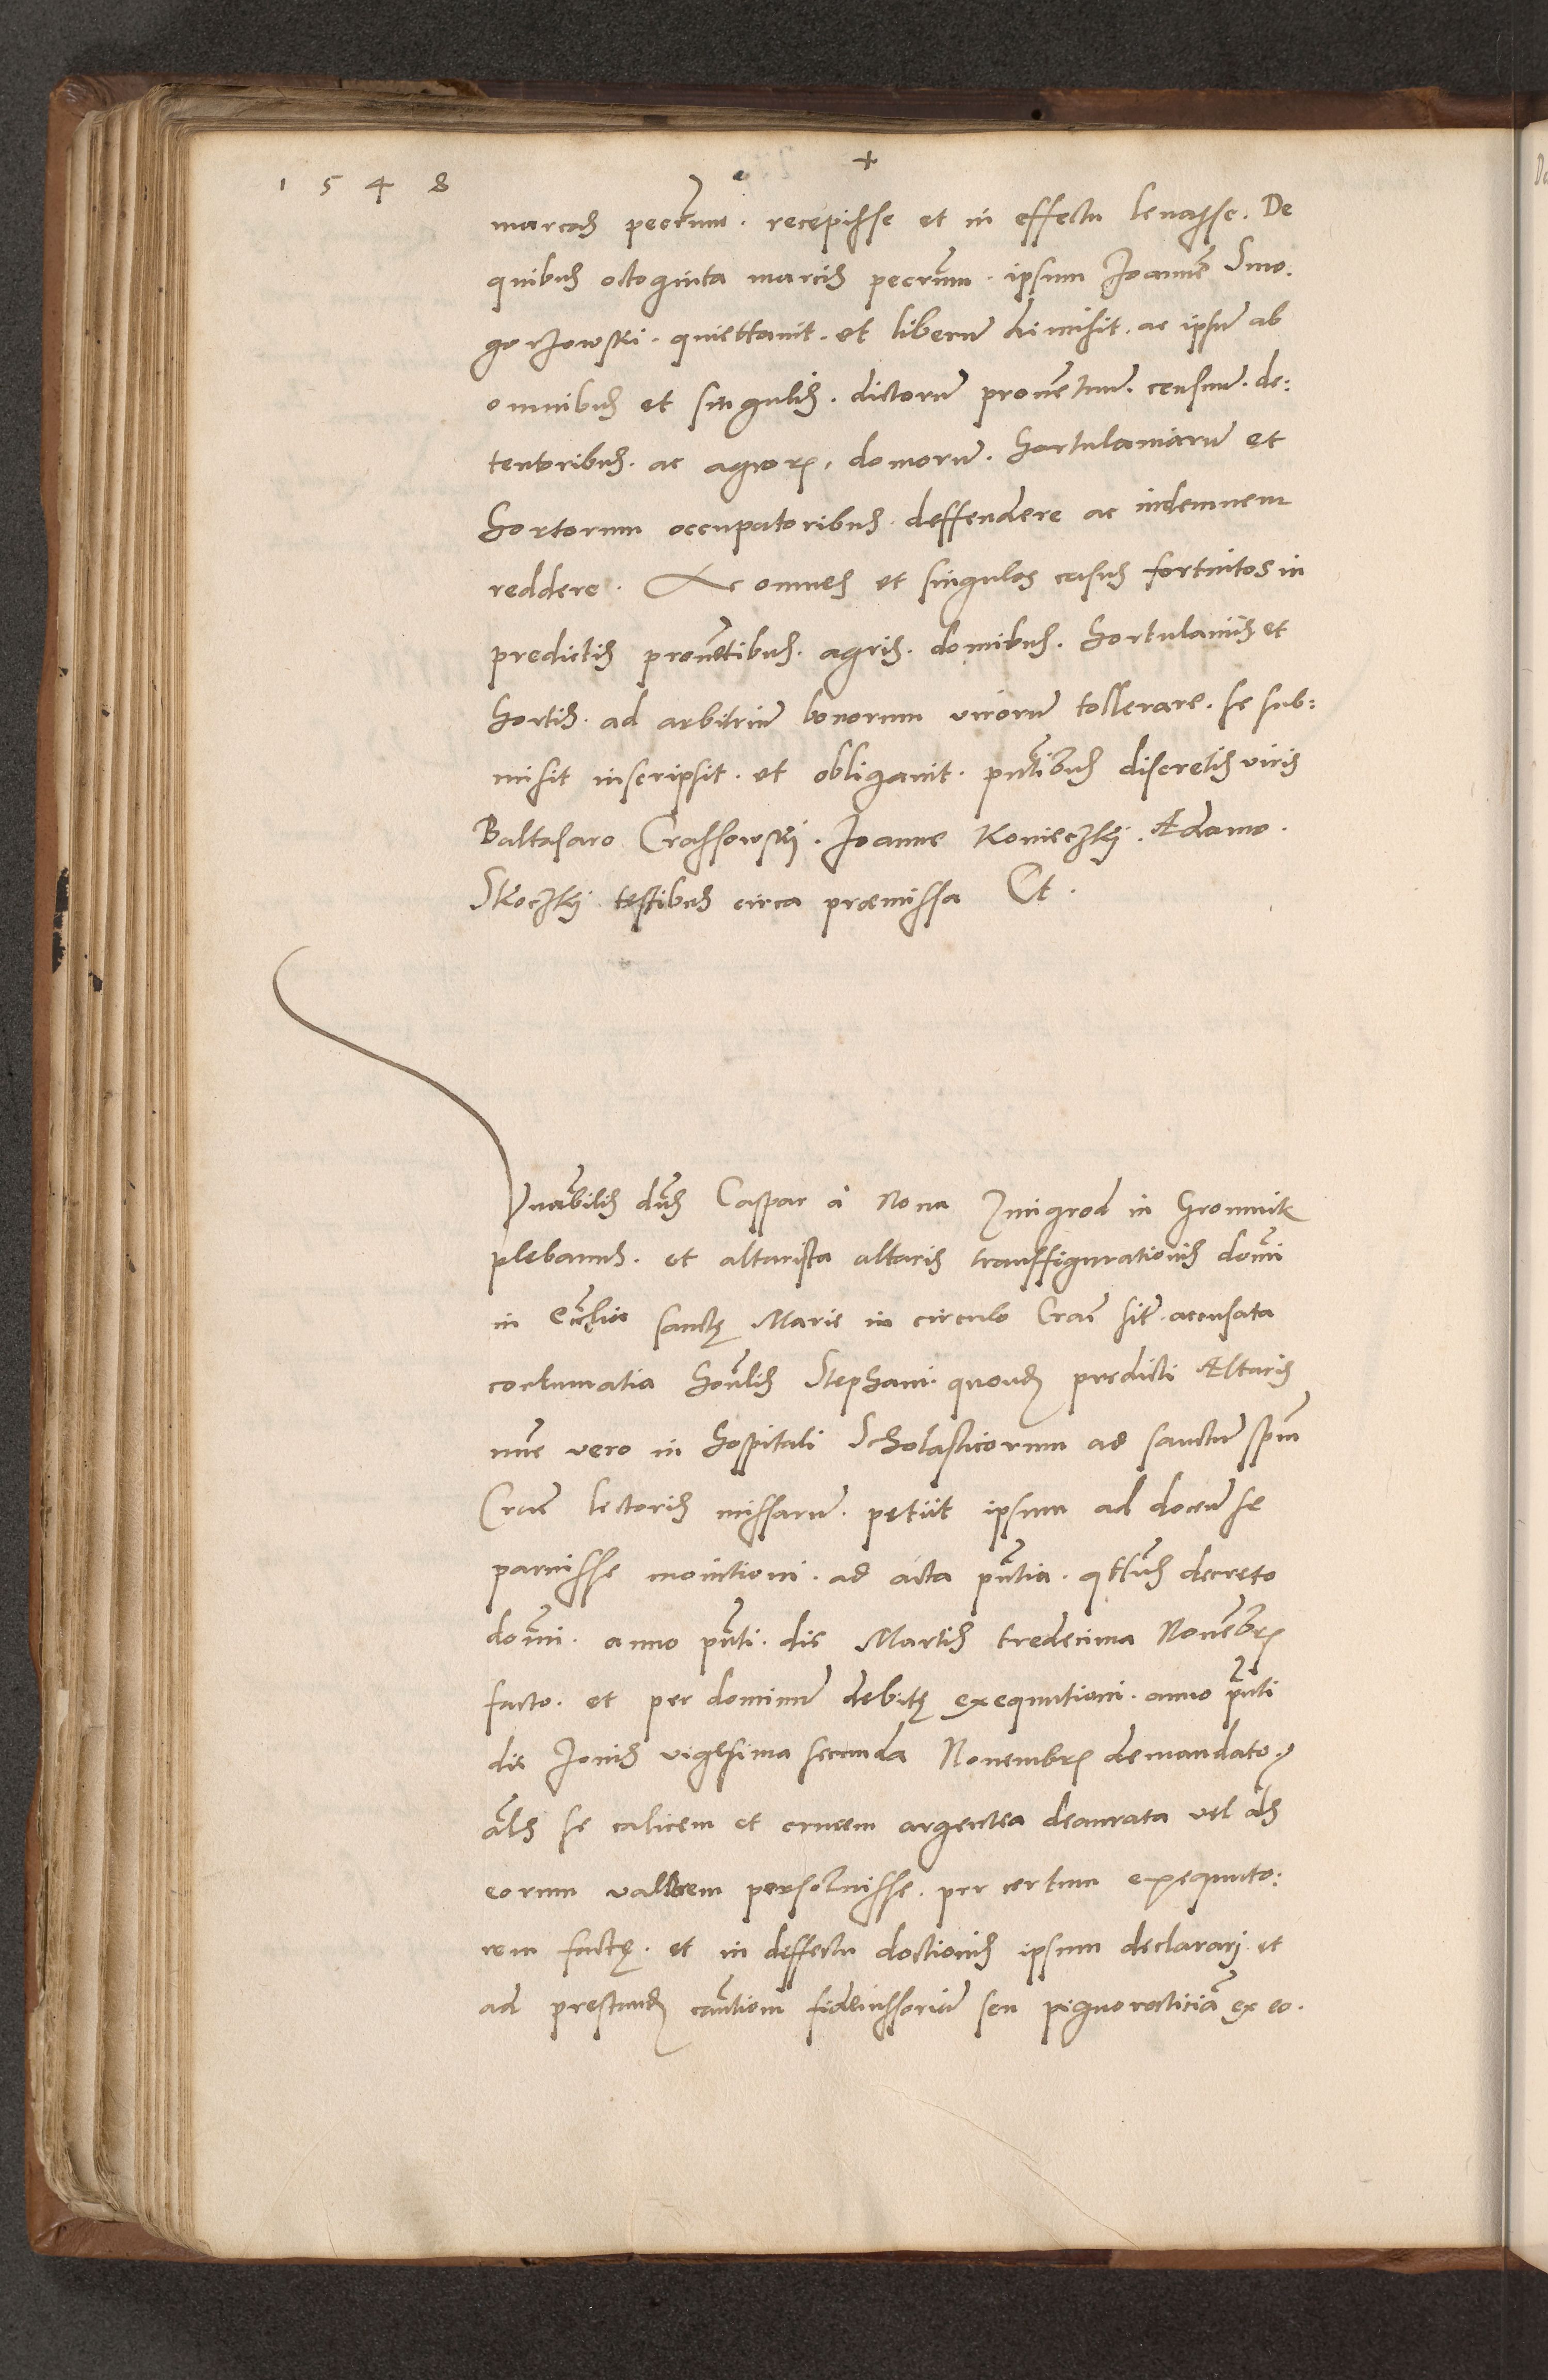 +
1 5 4 8
marcas pecc̃rum. recepisse et in effectu levasse. De
quibus octoginta marcis pecc̃rum. ipsum Joannẽ Smo:
gorzowski. quiettavit. et liberũ dimisit. ac ipsũ ab
omnibus et singulis. dictorũ provẽtuũ. censuũ. de:
tentoribus. ac agrorꝫ, domorũ. hortulaniarũ et
hortorum occupatoribus. deffendere ac indemnem
reddere. Ac omnes et singulos casus fortuitos in
predictis provẽtibus. agris. domibus. hortulaniis et
hortis. ad arbitriũ bonorum virorũ tollerare. se sub:
misit inscripsit. et obligavit. pñtibus discretis viris
Baltasaro Crassowskij. Joanne Konieczkij. Adamo.
Skoczkij testibus circa præmissa Et.
Vnãbilis dñs Caspar à Nova Zmigrod in Gromnik
plebanus. et altarista altaris transsfigurationis domĩ
in Ecc̃lia sanctę Marie in circulo Crač sit̃. accusata
contumatia hon̄lis Stephani. quondꝫ predicti Altaris
nũc vero in hospitali Scholasticorum ad sanctũ spm̃
Crač lectoris missarũ. petiit ipsum ad docen̄ se
paruisse monitioni. ad acta pñtia. qttus̃ decreto
domĩ. anno pñti. die Martis tredecima Novẽbrꝫ
facto. et per dominũ debitę exequutioni. anno pñti
die Jovis vigesima secunda Novembrꝫ demandato.
al̃s se calicem et crucem argentea deaurata vel al̃s
eorum valorem persolvisse. per certum exequuto:
rem factę. et in deffectu doctionis ipsum declararj et
ad prestandꝫ cautiõm fideiussoriã seu pignoraticiã ex eo.